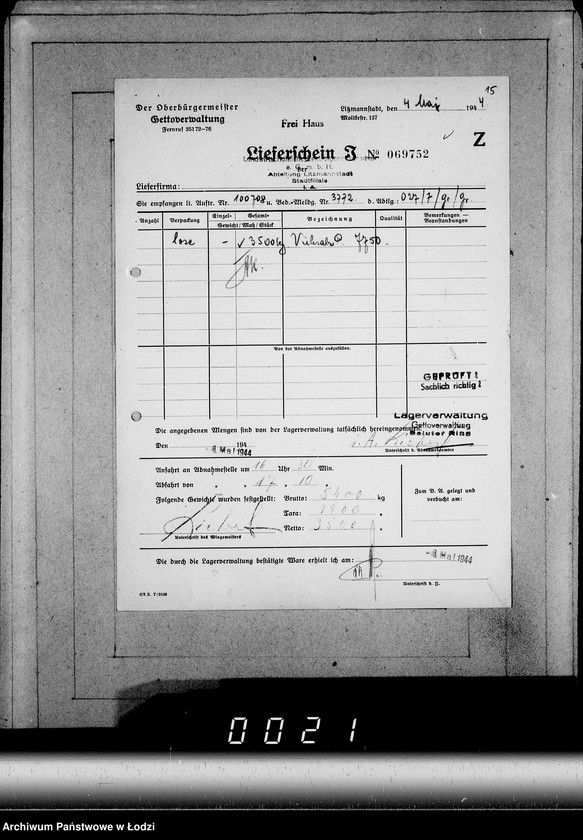 15
Der Oberbürgermeister
Gettoverwaltung
Fernruf 25172-76
Litzmannstadt, den 4 Mai 1944
Moltkestr. 157
Frei Haus
Z
Lieferschein J № 069752
der
e. G. m. b. H.
Abteilung Litzmannstadt
Stadtfiliale
Lieferfirma:
Sie empfangen lt. Auftr. Nr. 100708 u. Bed.-Meldg. Nr. 3772 d. Abtlg.: 027/7/Gr/gr.
Anzahl Verpackung Einzel- Gesamt- Bezeichnung Qualität Bemerkungen — Beanstandungen
Gewicht/Maß/Stück
lose - 3500 kg
Von der Abnahmestelle auszufüllen.
GEPRÜFT!
Sachlich richtig!
Lagerverwaltung
Gettoverwaltung
Baluter Ring
Die angegebenen Mengen sind von der Lagerverwaltung tatsächlich hereingenommen.
Den 194
Mai 1944
i. A.
Unterschrift d. Abnahmebeamten
Anfahrt an Abnahmestelle um 16 Uhr 30 Min.
Abfahrt von " " 17 " 10 "
Folgende Gewichte wurden festgestellt: Brutto: 5400 kg
Tara: 1900 "
Netto: 3500 "
Zum B. A. gelegt und
verbucht am:
Unterschrift des Wiegemeisters
Die durch die Lagerverwaltung bestätigte Ware erhielt ich am:
Mai 1944
0021
Archiwum Państwowe w Łodzi